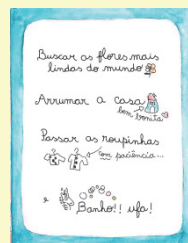 Buscar as flores mais
lindas do mundo
Arrumar a casa
bem bonita
Passar as roupinhas
com paciência...
e
Banho!! ufa!